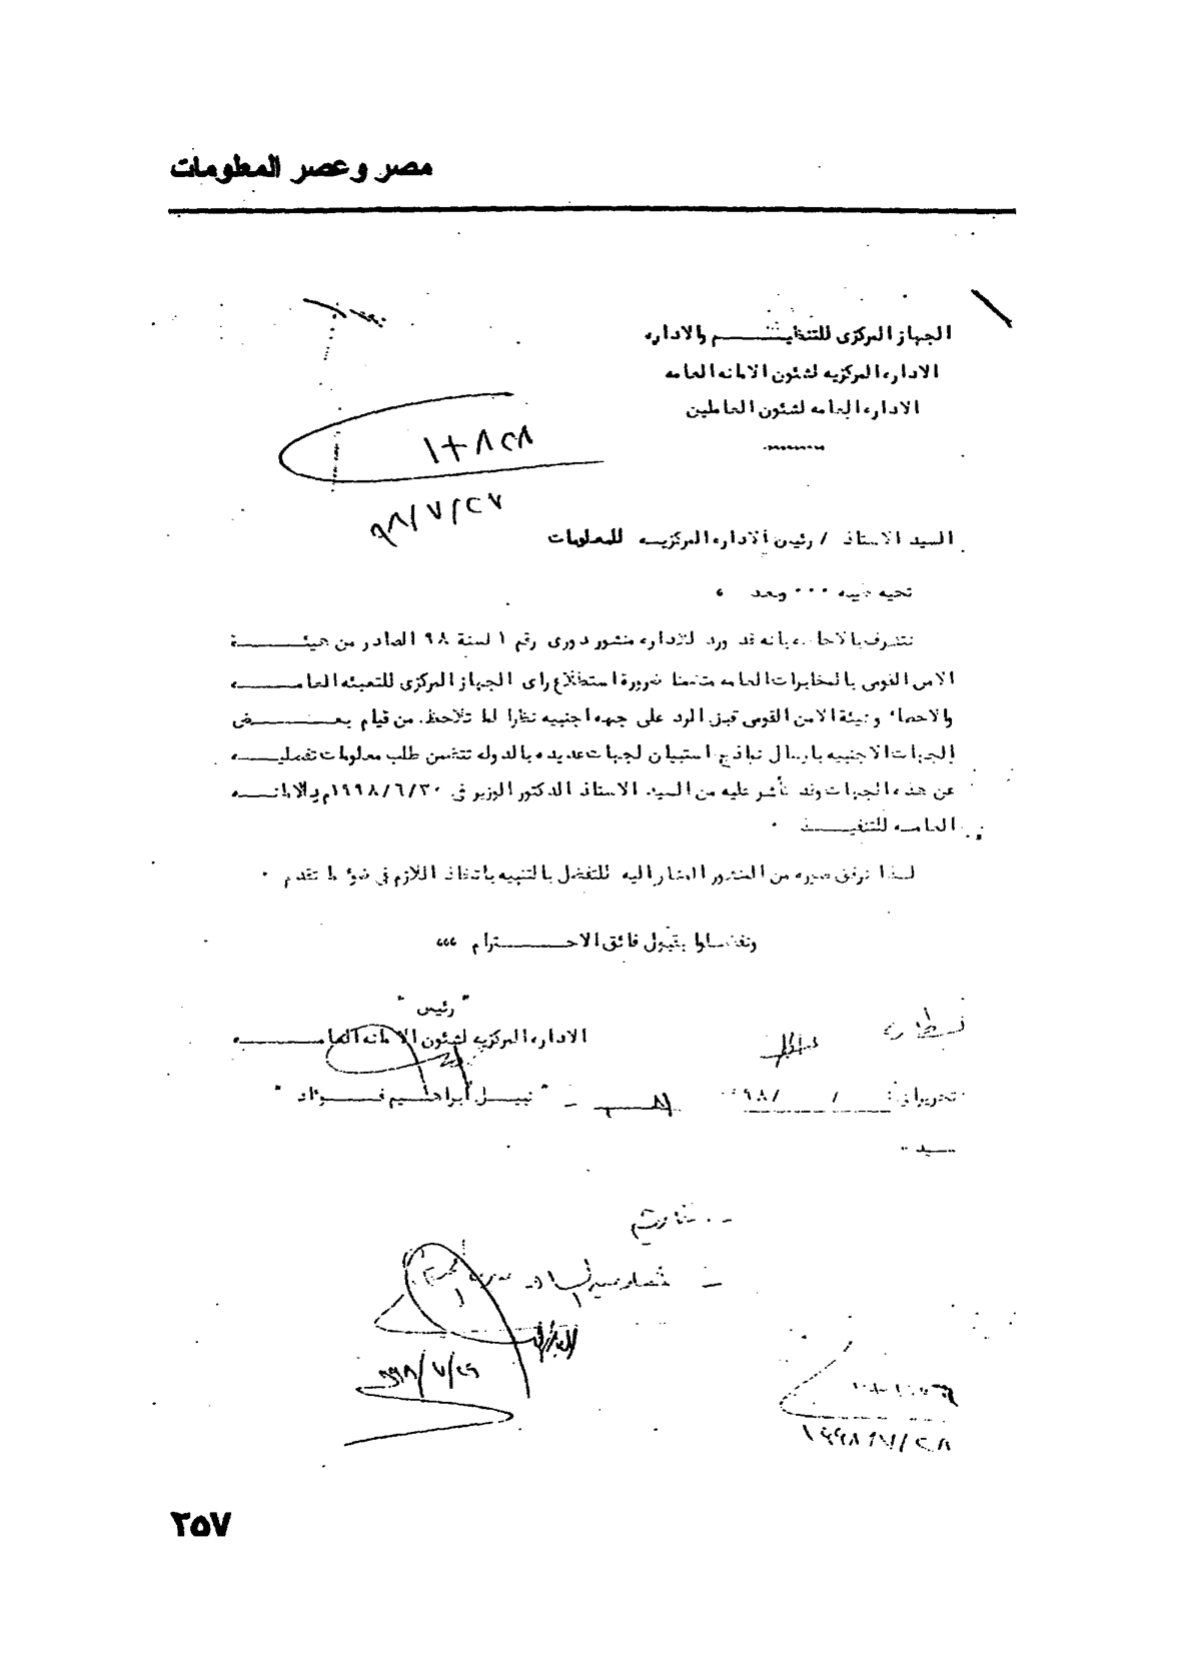 مصر وعصر المعلومات
الجهاز المركزى للتنظيـــــم والاداره
الاداره المركزيه لشئون الامانه العامه
الاداره العامه لشئون العاملين
٩٨/٧/٢٧
السيد الاستاذ / رئيس الاداره المركزيــه للمعلومات
تحيه طيبه ٠٠٠ وبعد ،
نتشرف بالاحاطه بانه قد ورد للاداره منشور دورى رقم ١ لسنة ٩٨ الصادر من هيئــــة
الامن القومى بالمخابرات العامه متضمنا ضرورة استطلاع راى الجهاز المركزى للتعبئه العامــــه
والاحصاء وهيئة الامن القومى قبل الرد على جهه اجنبيه نظرا لما تلاحظ من قيام بعــــض
الجهات الاجنبيه بارسال نماذج استبيان لجهات عديده بالدوله تتضمن طلب معلومات تفصليــــه
عن هذه الجهات وقد تأشر عليه من السيد الاستاذ الدكتور الوزير فى ١٩٩٨/٦/٣٠م بالامانــــه
العامــه للتنفيــــذ ٠
لــذا نرفق صوره من المنشور المشار اليه للتفضل بالتنبيه باتخاذ اللازم فى ضوء ما تقدم ٠
وتفضلوا بقبول فائق الاحــــترام ،،،
" رئيس "
الاداره المركزيه لشئون الامانه العامــــه
تحريرا فى / /٩٨
" نبيــل ابراهــيم فــــؤاد "
ــيد ٠٠
١٩٩٨/٧/٢٨
٢٥٧